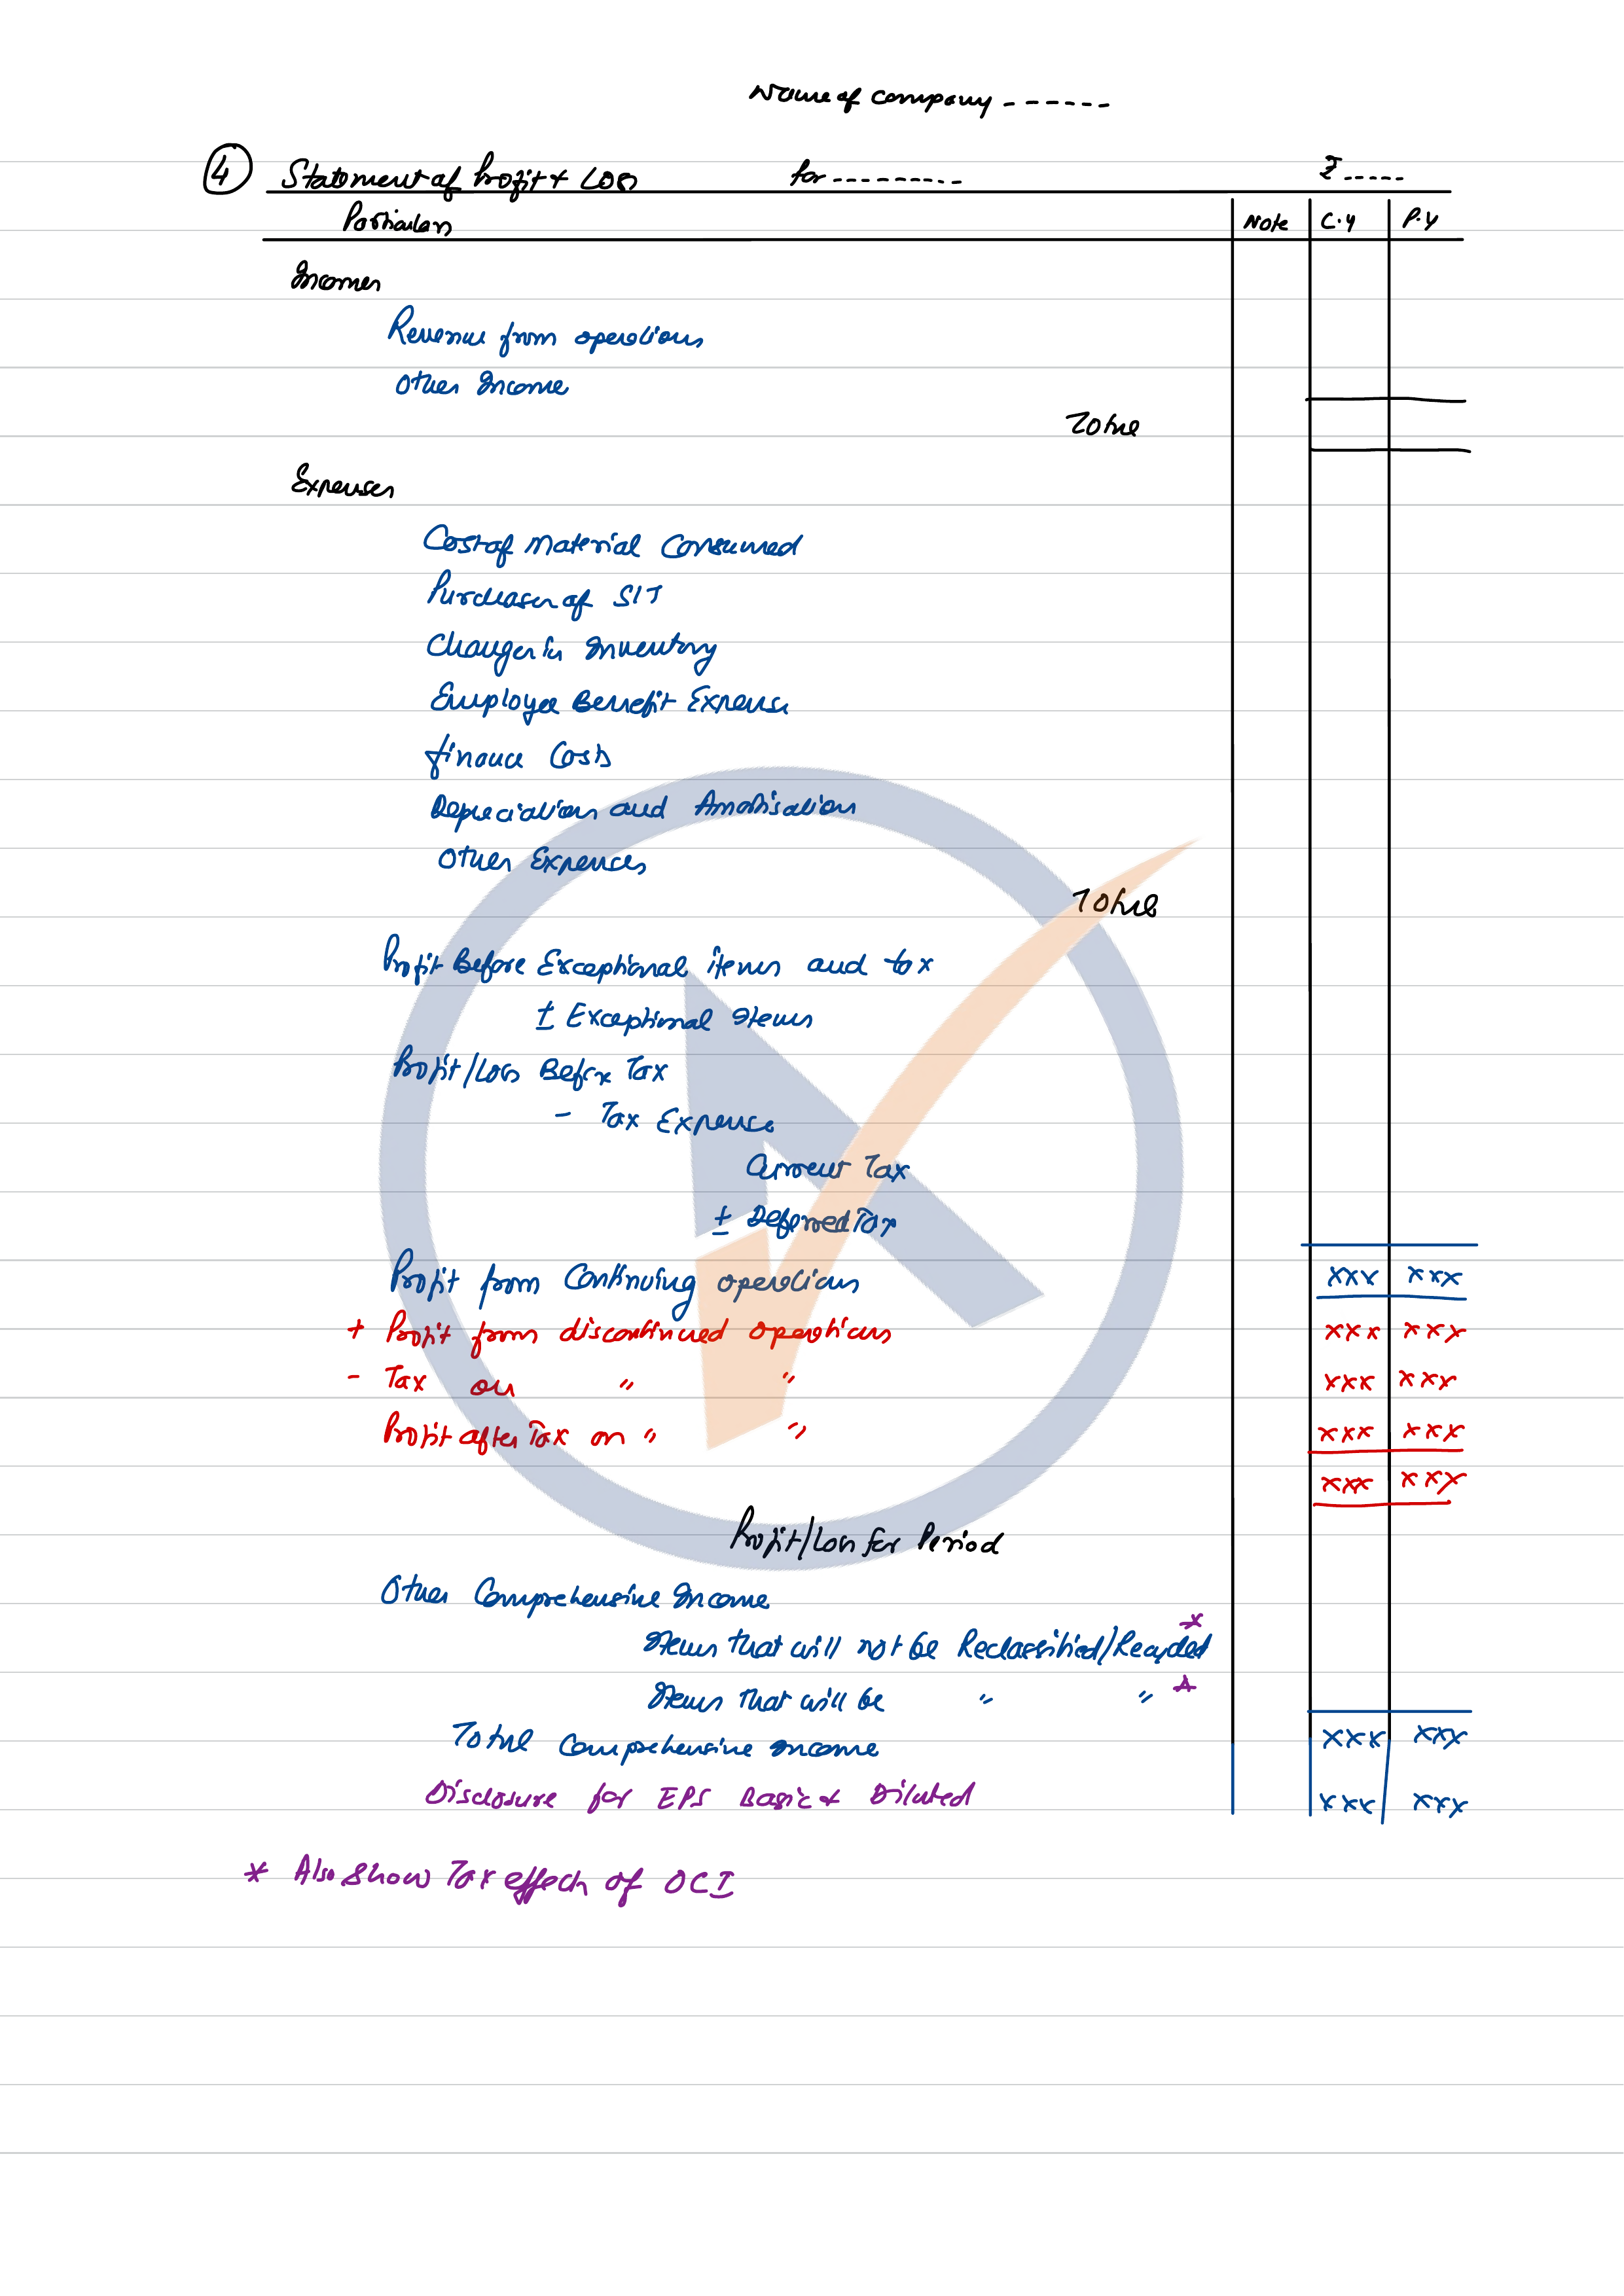 Name of company -------
④ Statement of Profit & Loss for --------- ₹ -----
Particulars Note C.Y P.Y
Incomes
Revenue from operations
Other Income
Total
Expenses
Cost of Material Consumed
Purchases of SIT
Changes in Inventory
Employee Benefit Expense
finance Costs
Depreciation and Amortisation
Other Expenses
Total
Profit Before Exceptional items and tax
± Exceptional Items
Profit/Loss Before Tax
- Tax Expense
Current Tax
± Deferred Tax
Profit from Continuing operations xxx xxx
+ Profit from discontinued operations xxx xxx
- Tax on " " xxx xxx
Profit after Tax on " " xxx xxx
xxx xxx
Profit/Loss for Period
Other Comprehensive Income
Items that will not be Reclassified/Recycled *
Items that will be " " *
Total Comprehensive Income xxx xxx
Disclosure for EPS Basic & Diluted xxx xxx
* Also show Tax effects of OCI